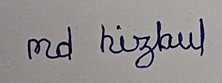 md hizbul